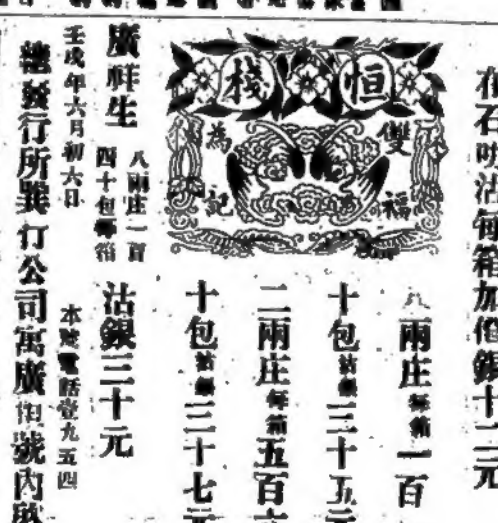 石叻沽每箱加銀十二元
恒棧
雙福
為記
八兩庄每箱一百
十包沽銀三十五元
二兩庄每箱五百
十包沽銀三十七元
廣祥生 八兩庄一百
四十包每箱 沽銀三十元
壬戌年六月初六日 本號電話壹九五四
總發行所巽打公司寓廣號內